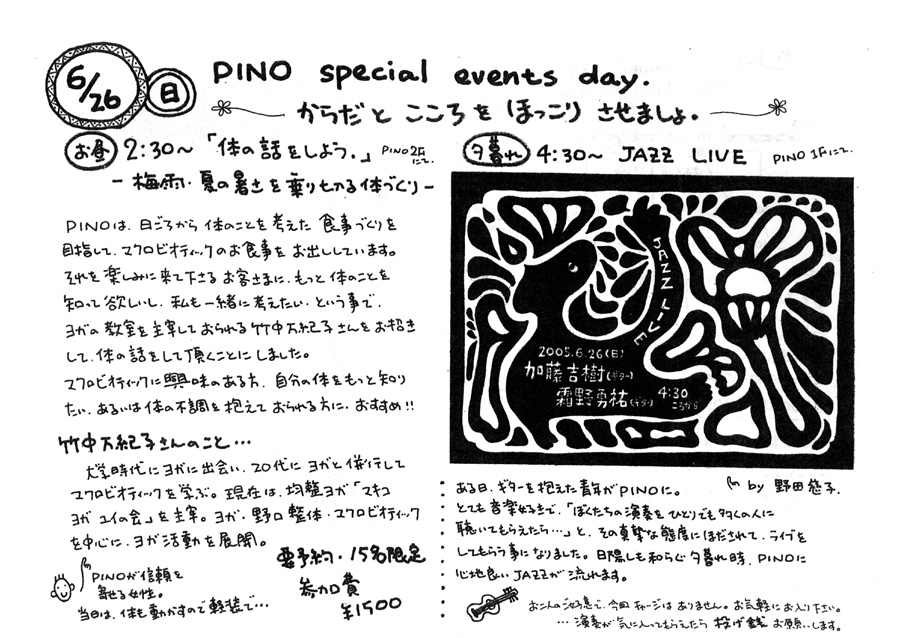 6/26 日
PINO special events day.
からだと こころを ほっこり させましょ。
お昼 2:30〜 「体の話をしよう。」 PINO2Fにて.
- 梅雨・夏の暑さを乗りきる体づくり -
PINOは、日ごろから体のことを考えた食事づくりを
目指して、マクロビオティックのお食事をお出ししています。
それを楽しみに来て下さるお客さまに、もっと体のことを
知って欲しいし、私も一緒に考えたい、という事で、
ヨガの教室を主宰しておられる竹中万紀子さんをお招き
して、体の話をして頂くことにしました。
マクロビオティックに興味のある方、自分の体をもっと知り
たい、あるいは体の不調を抱えておられる方に、おすすめ!!
竹中万紀子さんのこと…
大学時代にヨガに出会い、20代にヨガと併行して
マクロビオティックを学ぶ。現在は、均整ヨガ「マキコ
ヨガ ユイの会」を主宰。ヨガ・野口整体・マクロビオティック
を中心に、ヨガ活動を展開。
PINOが信頼を
寄せる女性。
当日は、体を動かすので軽装で…
要予約・15名限定
参加費
¥1500
夕暮れ 4:30〜 JAZZ LIVE PINO 1Fにて.
JAZZ LIVE
2005.6.26(日)
加藤吉樹(ギター)
霜野勇祐(ギター)
4:30
ごろから
by 野田悠子.
ある日、ギターを抱えた青年がPINOに。
とても音楽好きで、「ぼくたちの演奏をひとりでも多くの人に
聴いてもらえたら…」と、その真摯な態度にほだされて、ライブを
してもらう事になりました。日陽しも和らぐ夕暮れ時、PINOに
心地良いJAZZが流れます。
お二人のご好意で、今回チャージはありません。お気軽にお入り下さい。
…演奏が気に入ってもらえたら 投げ銭 お願いします。